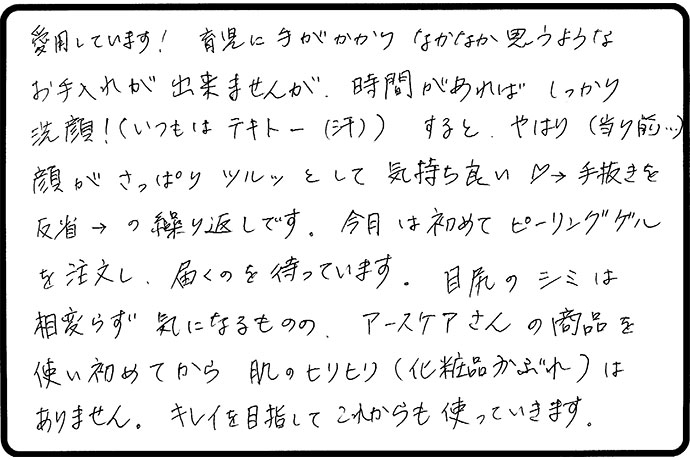 愛用しています! 育児に手がかかり なかなか思うような
お手入れが出来ませんが、時間があれば しっかり
洗顔!(いつもは テキトー(汗)) すると、やはり(当り前…)
顔がさっぱり ツルッとして 気持ち良い♡→手抜きを
反省→の繰り返しです。今月は初めて ピーリングゲル
を注文し、届くのを待っています。目尻のシミは
相変らず 気になるものの、アースケアさんの商品を
使い初めてから 肌のヒリヒリ(化粧品かぶれ)は
ありません。キレイを目指して これからも使っていきます。